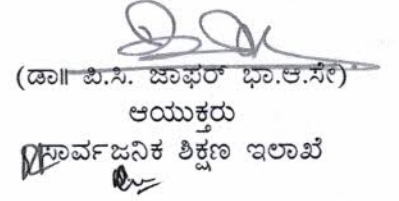 (ಡಾ॥ ಪಿ.ಸಿ. ಜಾಫರ್ ಭಾ.ಆ.ಸೇ)
ಆಯುಕ್ತರು
ಸಾರ್ವಜನಿಕ ಶಿಕ್ಷಣ ಇಲಾಖೆ